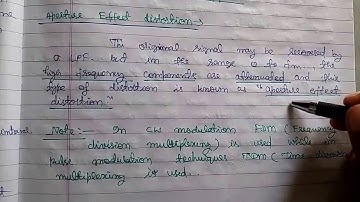 Aperture Effect distortion →
The original signal may be recovered by
a LPF. but in the range 0 to fm. the
high frequency components are attenuated and this
type of distortion is known as "aperture effect
distortion."
Note:— In CW modulation FDM (Frequency
division multiplexing) is used while in
pulse modulation techniques TDM (Time division
multiplexing is used..